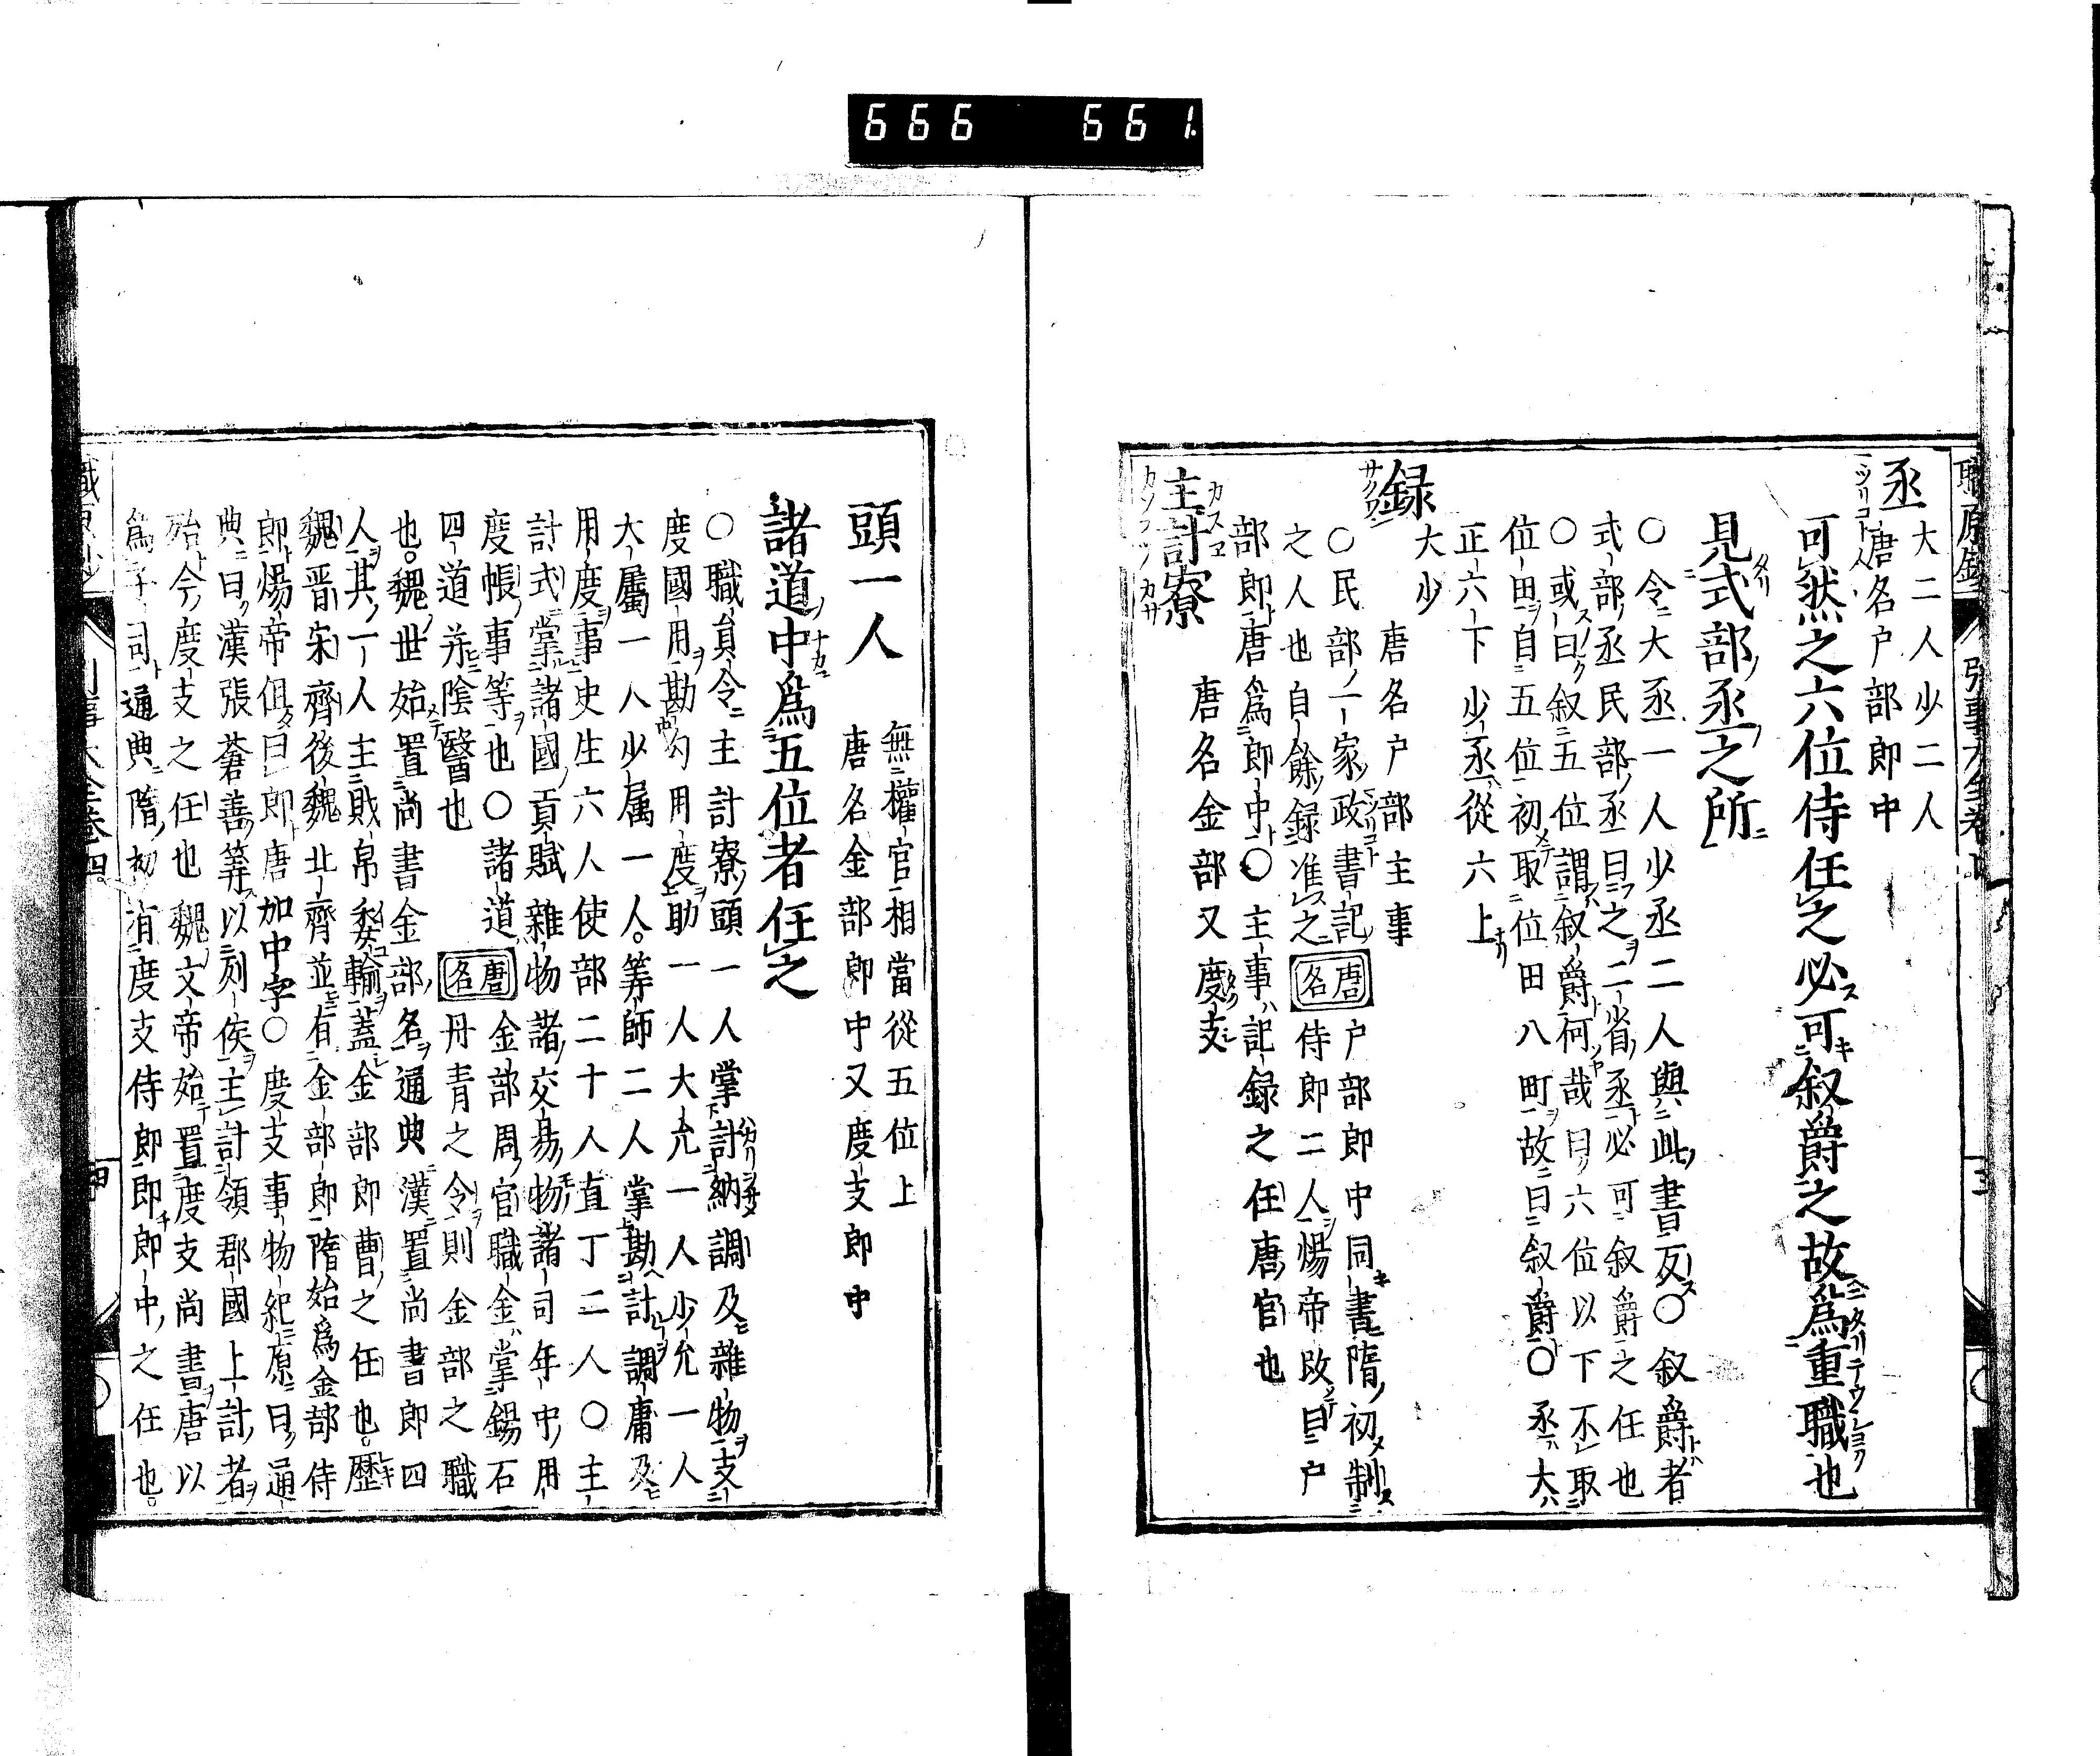 666 661
丞
大二人少二人
唐名戸部郎中
可然之六位侍任之必可叙爵之故為重職也
見式部丞之所
○令大丞一人少丞二人與此書反○叙爵者
式部丞民部丞曰之二省丞必可叙爵之任也
○或曰叙五位謂叙爵何哉曰六位以下不取
位田自五位初取位田八町故曰叙爵○丞大
正六下少丞從六上
録
大少
唐名戸部主事
○民部一家政書記唐名戸部郎中同書隋初制
之人也自餘録准之唐名侍郎二人煬帝改曰戸
部郎唐為郎中○主事記録之任唐官也
主計寮
唐名金部又度支
頭一人
無權官相當從五位上
唐名金部郎中又度支郎中
諸道中為五位者任之
○職員令主計寮頭一人掌計納調及雜物支
度國用勘勾用度助一人大允一人少允一人
大屬一人少属一人。筭師二人掌勘計調庸及
用度事史生六人使部二十人直丁二人○主
計式掌諸國貢賦雜物諸交易物諸司年中用
度帳事等也○諸道唐名金部周官職金掌錫石
四道并陰醫也唐名丹青之令則金部之職
也。魏世始置尚書金部名通典漢置尚書郎四
人其一人主戝帛委輸蓋金部郎曹之任也。歷
魏晋宋齊後魏北齊並有金部郎隋始為金部侍
郎煬帝但曰郎唐加中字○度支事物紀原曰通
典曰漢張蒼善筭以列侯主計領郡國上計者
殆今度支之任也魏文帝始置度支尚書唐以
為子司通典隋初有度支侍郎即郎中之任也。